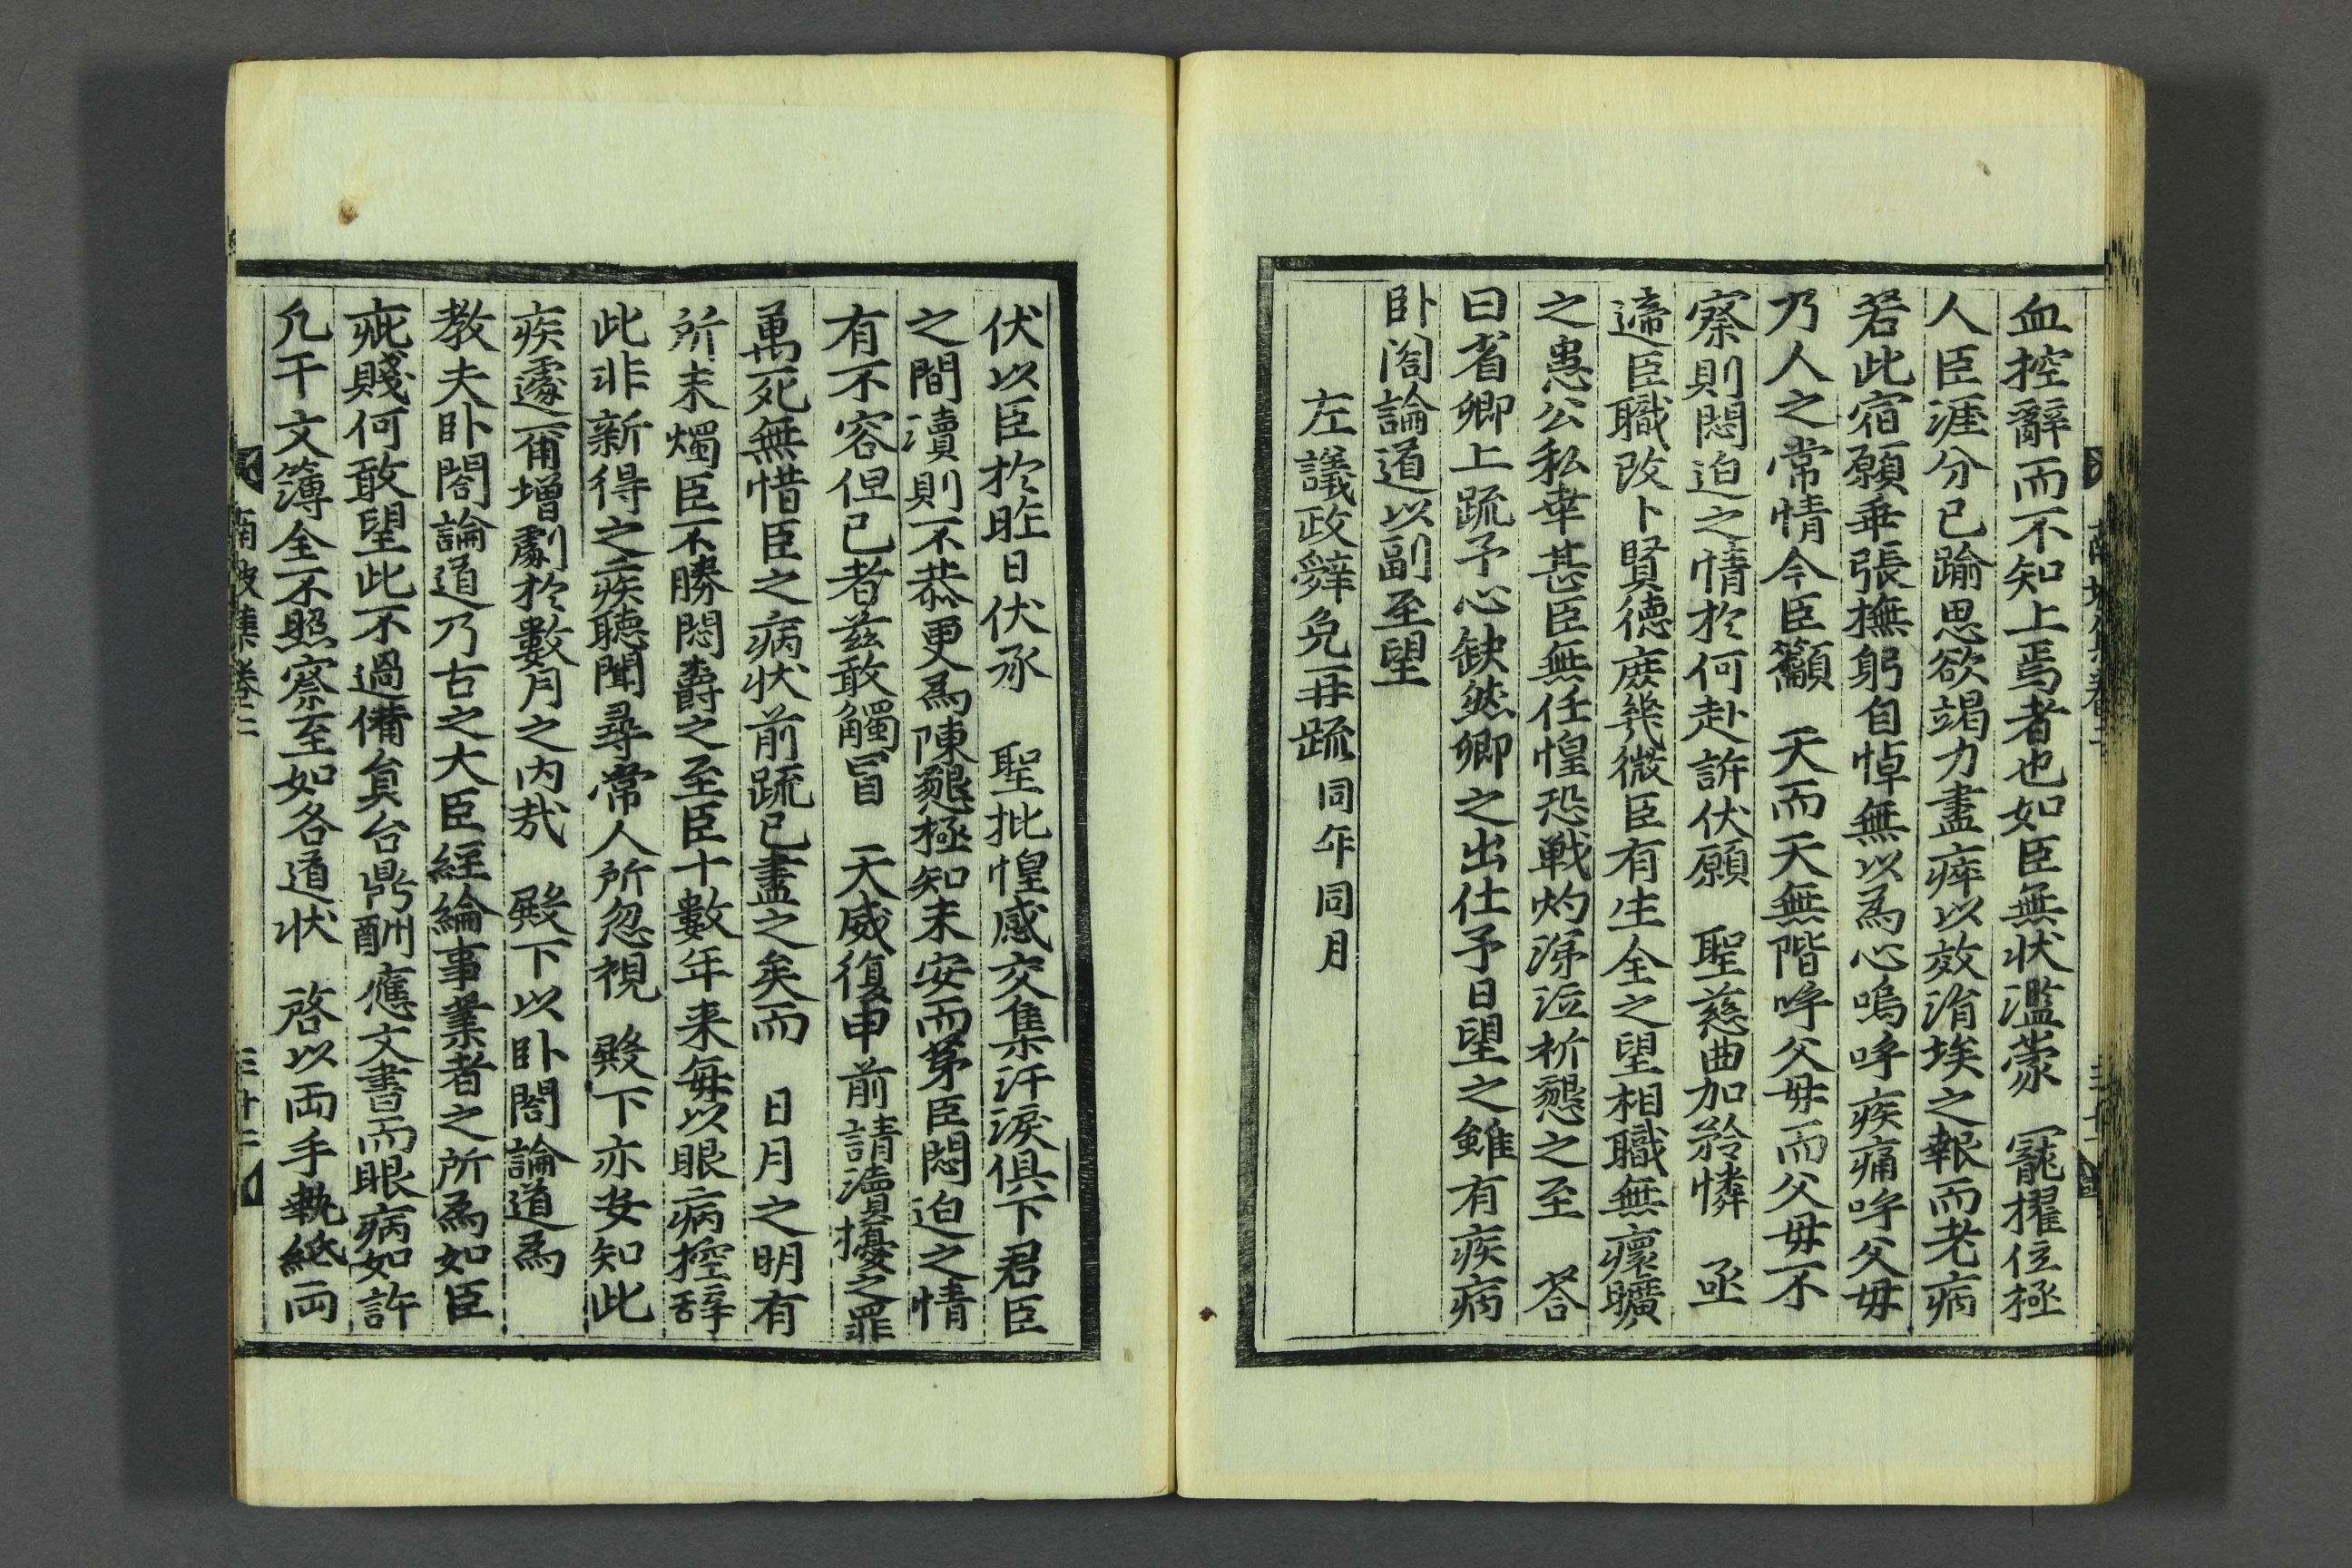 血控辭而不知止焉者也如臣無狀濫蒙 寵擢位極
人臣涯分已踰思欲竭力盡瘁以效涓埃之報而老病
若此宿願乖張撫躬自悼無以爲心嗚呼疾痛呼父母
乃人之常情今臣籲 天而天無階呼父母而父母不
察則悶迫之情於何赴訴伏願 聖慈曲加矜憐 亟
遞臣職改卜賢德庶幾微臣有生全之望相職無癏曠
之患公私幸甚臣無任惶恐戰灼涕泣祈懇之至 答
曰省卿上疏予心缺然卿之出仕予日望之雖有疾病
卧閤論道以副至望
左議政辭免再疏 同年同月
伏以臣於昨日伏承 聖批惶感交集汗淚俱下君臣
之間瀆則不恭更爲陳懇極知未安而第臣悶迫之情
有不容但已者玆敢觸冒 天威復申前請瀆擾之罪
萬死無惜臣之病狀前疏已盡之矣而 日月之明有
所未燭臣不勝悶欝之至臣十數年来每以眼病控辭
此非新得之疾聽聞尋常人所忽視 殿下亦安知此
疾遽甬增劇於數月之内哉 殿下以卧閤論道爲
教夫卧閤論道乃古之大臣經綸事業者之所爲如臣
疵賤何敢望此不過備員台鼎酬應文書而眼病如許
凡干文簿全不照察至如各道狀 啓以両手執紙両
南坡集卷二
三十二